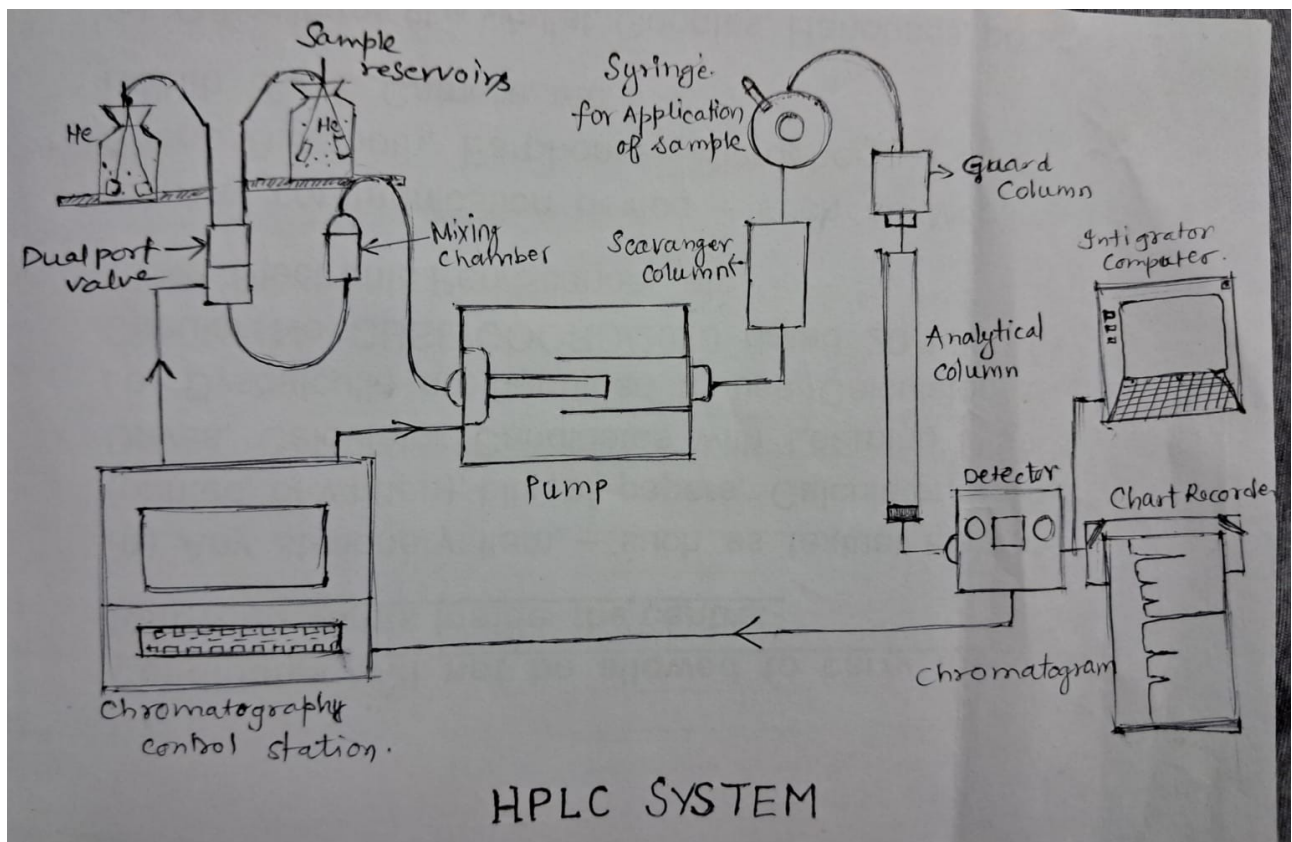 Sample
reservoirs
He
He
Dual port
valve
Mixing
Chamber
Syringe
for Application
of sample
Scavanger
Column
Guard
Column
Analytical
Column
Intigrator
Computer
Pump
Detector
Chart Recorder
Chromatogram
Chromatography
control station.
HPLC SYSTEM